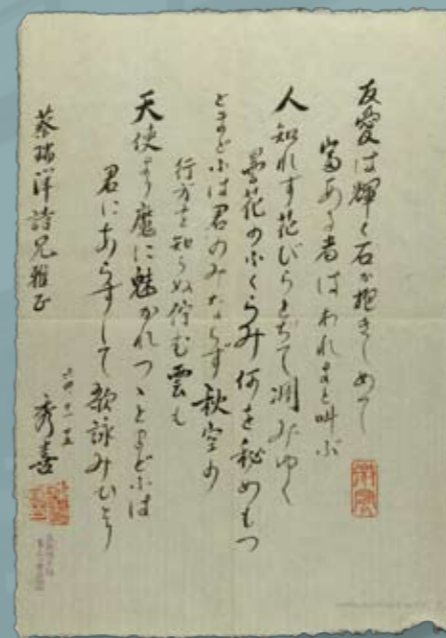 友愛は輝く石か抱きしめて
富ある者はわれよと叫ぶ
人知れす花びらとぢて凋みゆく
曇花の小くらみ何を秘めもつ
とまどふは君のみならず秋空の
行方を知らぬ佇む雲も
天使より魔に魅かれつゝとまどふは
君にあらずして歌詠みひとり
蔡瑞洋詩兄雅正
秀喜